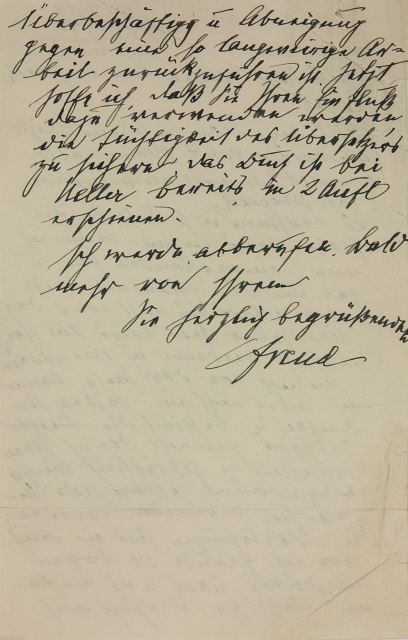 Überbeschäftigg u Abneigung
gegen eine so langwierige Ar-
beit zurückzuführen ist. Jetzt
hoffe ich, daß Sie Ihren Einfluß
dazu verwenden werden
die Tüchtigkeit des Übersetzers
zu sichern. Das Buch ist bei
Heller bereits in 2 Aufl
erschienen.
Ich werde abberufen. Bald
mehr von Ihrem
Sie herzlich begrüßenden
Freud